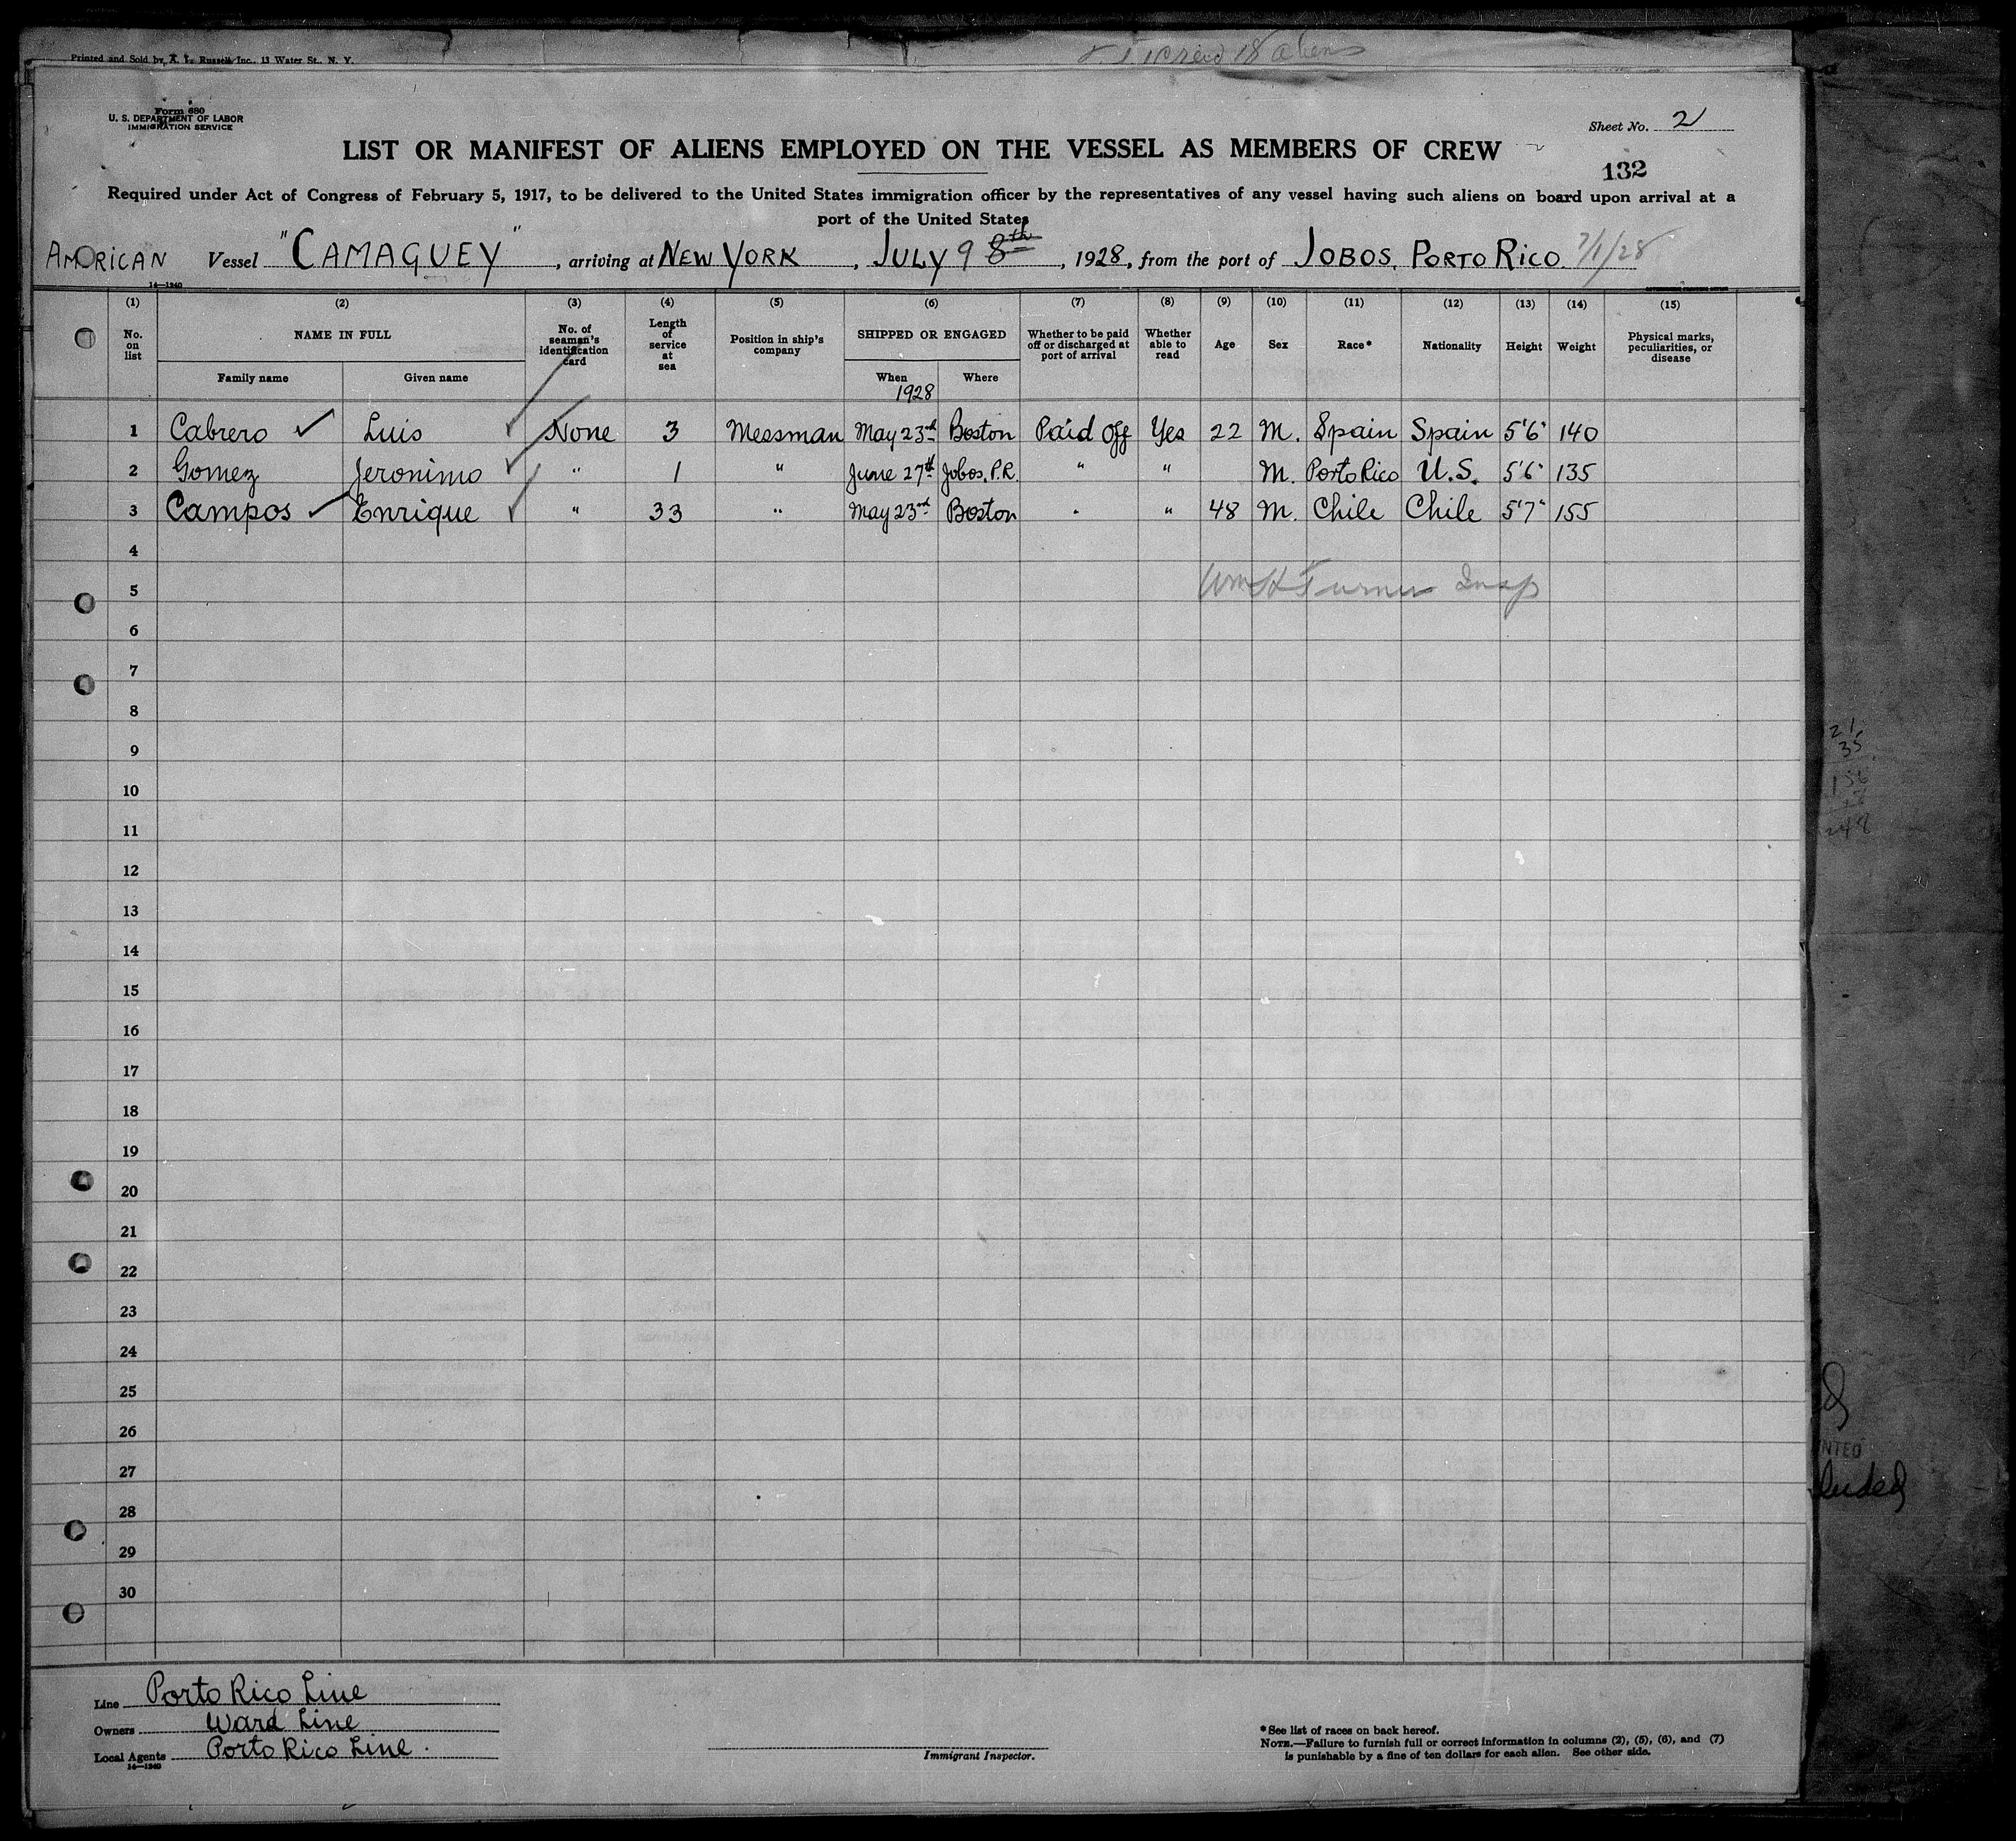 Printed and Sold by A. L. Russell, Inc., 13 Water St., N. Y.
18 aliens
Form 680
U. S. DEPARTMENT OF LABOR
IMMIGRATION SERVICE
Sheet No. 2
LIST OR MANIFEST OF ALIENS EMPLOYED ON THE VESSEL AS MEMBERS OF CREW
132
Required under Act of Congress of February 5, 1917, to be delivered to the United States immigration officer by the representatives of any vessel having such aliens on board upon arrival at a
port of the United States
AMERICAN Vessel "CAMAGUEY", arriving at NEW YORK, JULY 9 8th, 1928, from the port of JOBOS, PORTO RICO. 7/1/28
14—1240
(1) (2) (3) (4) (5) (6) (7) (8) (9) (10) (11) (12) (13) (14) (15)
No. on list NAME IN FULL No. of seaman's identification card Length of service at sea Position in ship's company SHIPPED OR ENGAGED Whether to be paid off or discharged at port of arrival Whether able to read Age Sex Race* Nationality Height Weight Physical marks, peculiarities, or disease
Family name Given name When Where
1928
1 Cabrero Luis None 3 Messman May 23rd Boston Paid Off Yes 22 M. Spain Spain 5'6" 140
2 Gomez Jeronimo " 1 " June 27th Jobos, P.R. " " M. Porto Rico U.S. 5'6" 135
3 Campos Enrique " 33 " May 23rd Boston " " 48 M. Chile Chile 5'7" 155
4
5 Wm H Turner Insp
6
7
8
9
10
11
12
13
14
15
16
17
18
19
20
21
22
23
24
25
26
27
28
29
30
Line Porto Rico Line
Owners Ward Line
Local Agents Porto Rico Line.
14—1240
Immigrant Inspector.
*See list of races on back hereof.
NOTE.—Failure to furnish full or correct information in columns (2), (5), (6), and (7)
is punishable by a fine of ten dollars for each alien. See other side.